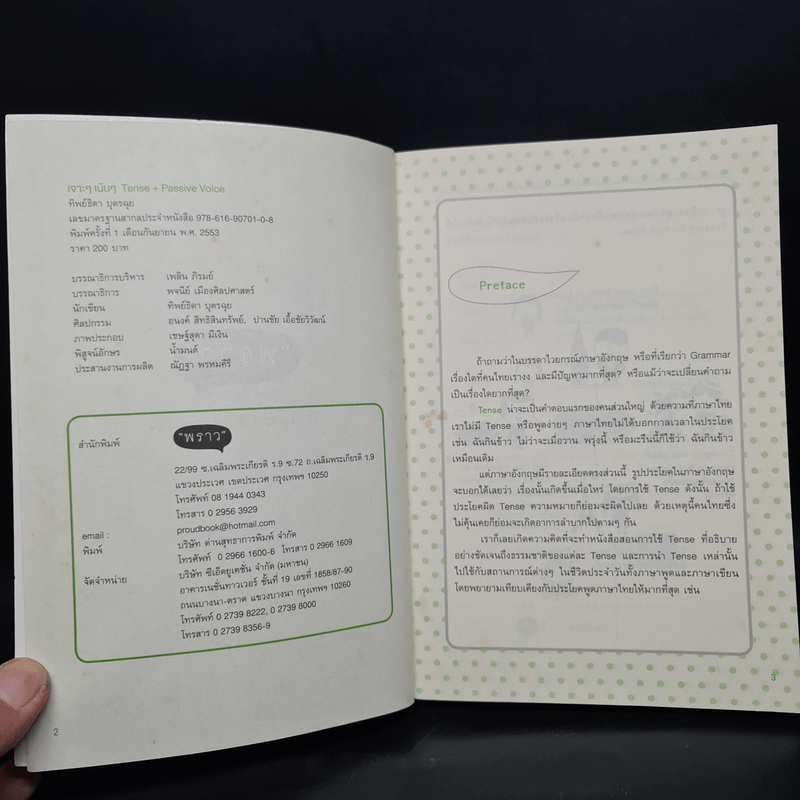 เจาะๆ เน้นๆ Tense + Passive Voice
ทิพย์ธิดา บุตรฉุย
เลขมาตรฐานสากลประจำหนังสือ 978-616-90701-0-8
พิมพ์ครั้งที่ 1 เดือนกันยายน พ.ศ. 2553
ราคา 200 บาท
บรรณาธิการบริหาร เพลิน ภิรมย์
บรรณาธิการ พจนีย์ เมืองศิลปศาสตร์
นักเขียน ทิพย์ธิดา บุตรฉุย
ศิลปกรรม อนงค์ สิทธิสินทรัพย์, ปานชัย เอื้อชัยวิวัฒน์
ภาพประกอบ เชษฐ์สุดา มีเงิน
พิสูจน์อักษร น้ำมนต์
ประสานงานการผลิต ณัฏฐา พรหมคีรี
สำนักพิมพ์ "พราว"
22/99 ซ.เฉลิมพระเกียรติ ร.9 ซ.72 ถ.เฉลิมพระเกียรติ ร.9
แขวงประเวศ เขตประเวศ กรุงเทพฯ 10250
โทรศัพท์ 08 1944 0343
โทรสาร 0 2956 3929
email : proudbook@hotmail.com
พิมพ์ บริษัท ด่านสุทธาการพิมพ์ จำกัด
โทรศัพท์ 0 2966 1600-6 โทรสาร 0 2966 1609
จัดจำหน่าย บริษัท ซีเอ็ดยูเคชั่น จำกัด (มหาชน)
อาคารเนชั่นทาวเวอร์ ชั้นที่ 19 เลขที่ 1858/87-90
ถนนบางนา-ตราด แขวงบางนา กรุงเทพฯ 10260
โทรศัพท์ 0 2739 8222, 0 2739 8000
โทรสาร 0 2739 8356-9
2
Preface
ถ้าถามว่าในบรรดาไวยกรณ์ภาษาอังกฤษ หรือที่เรียกว่า Grammar
เรื่องใดที่คนไทยเรางง และมีปัญหามากที่สุด? หรือแม้ว่าจะเปลี่ยนคำถาม
เป็นเรื่องใดยากที่สุด?
Tense น่าจะเป็นคำตอบแรกของคนส่วนใหญ่ ด้วยความที่ภาษาไทย
เราไม่มี Tense หรือพูดง่ายๆ ภาษาไทยไม่ได้บอกกาลเวลาในประโยค
เช่น ฉันกินข้าว ไม่ว่าจะเมื่อวาน พรุ่งนี้ หรือมะรืนนี้ก็ใช้ว่า ฉันกินข้าว
เหมือนเดิม
แต่ภาษาอังกฤษมีรายละเอียดตรงส่วนนี้ รูปประโยคในภาษาอังกฤษ
จะบอกได้เลยว่า เรื่องนั้นเกิดขึ้นเมื่อไหร่ โดยการใช้ Tense ดังนั้น ถ้าใช้
ประโยคผิด Tense ความหมายก็ย่อมจะผิดไปเลย ด้วยเหตุนี้คนไทยซึ่ง
ไม่คุ้นเคยก็ย่อมจะเกิดอาการลำบากไปตามๆ กัน
เราก็เลยเกิดความคิดที่จะทำหนังสือสอนการใช้ Tense ที่อธิบาย
อย่างชัดเจนถึงธรรมชาติของแต่ละ Tense และการนำ Tense เหล่านั้น
ไปใช้กับสถานการณ์ต่างๆ ในชีวิตประจำวันทั้งภาษาพูดและภาษาเขียน
โดยพยายามเทียบเคียงกับประโยคพูดภาษาไทยให้มากที่สุด เช่น
3